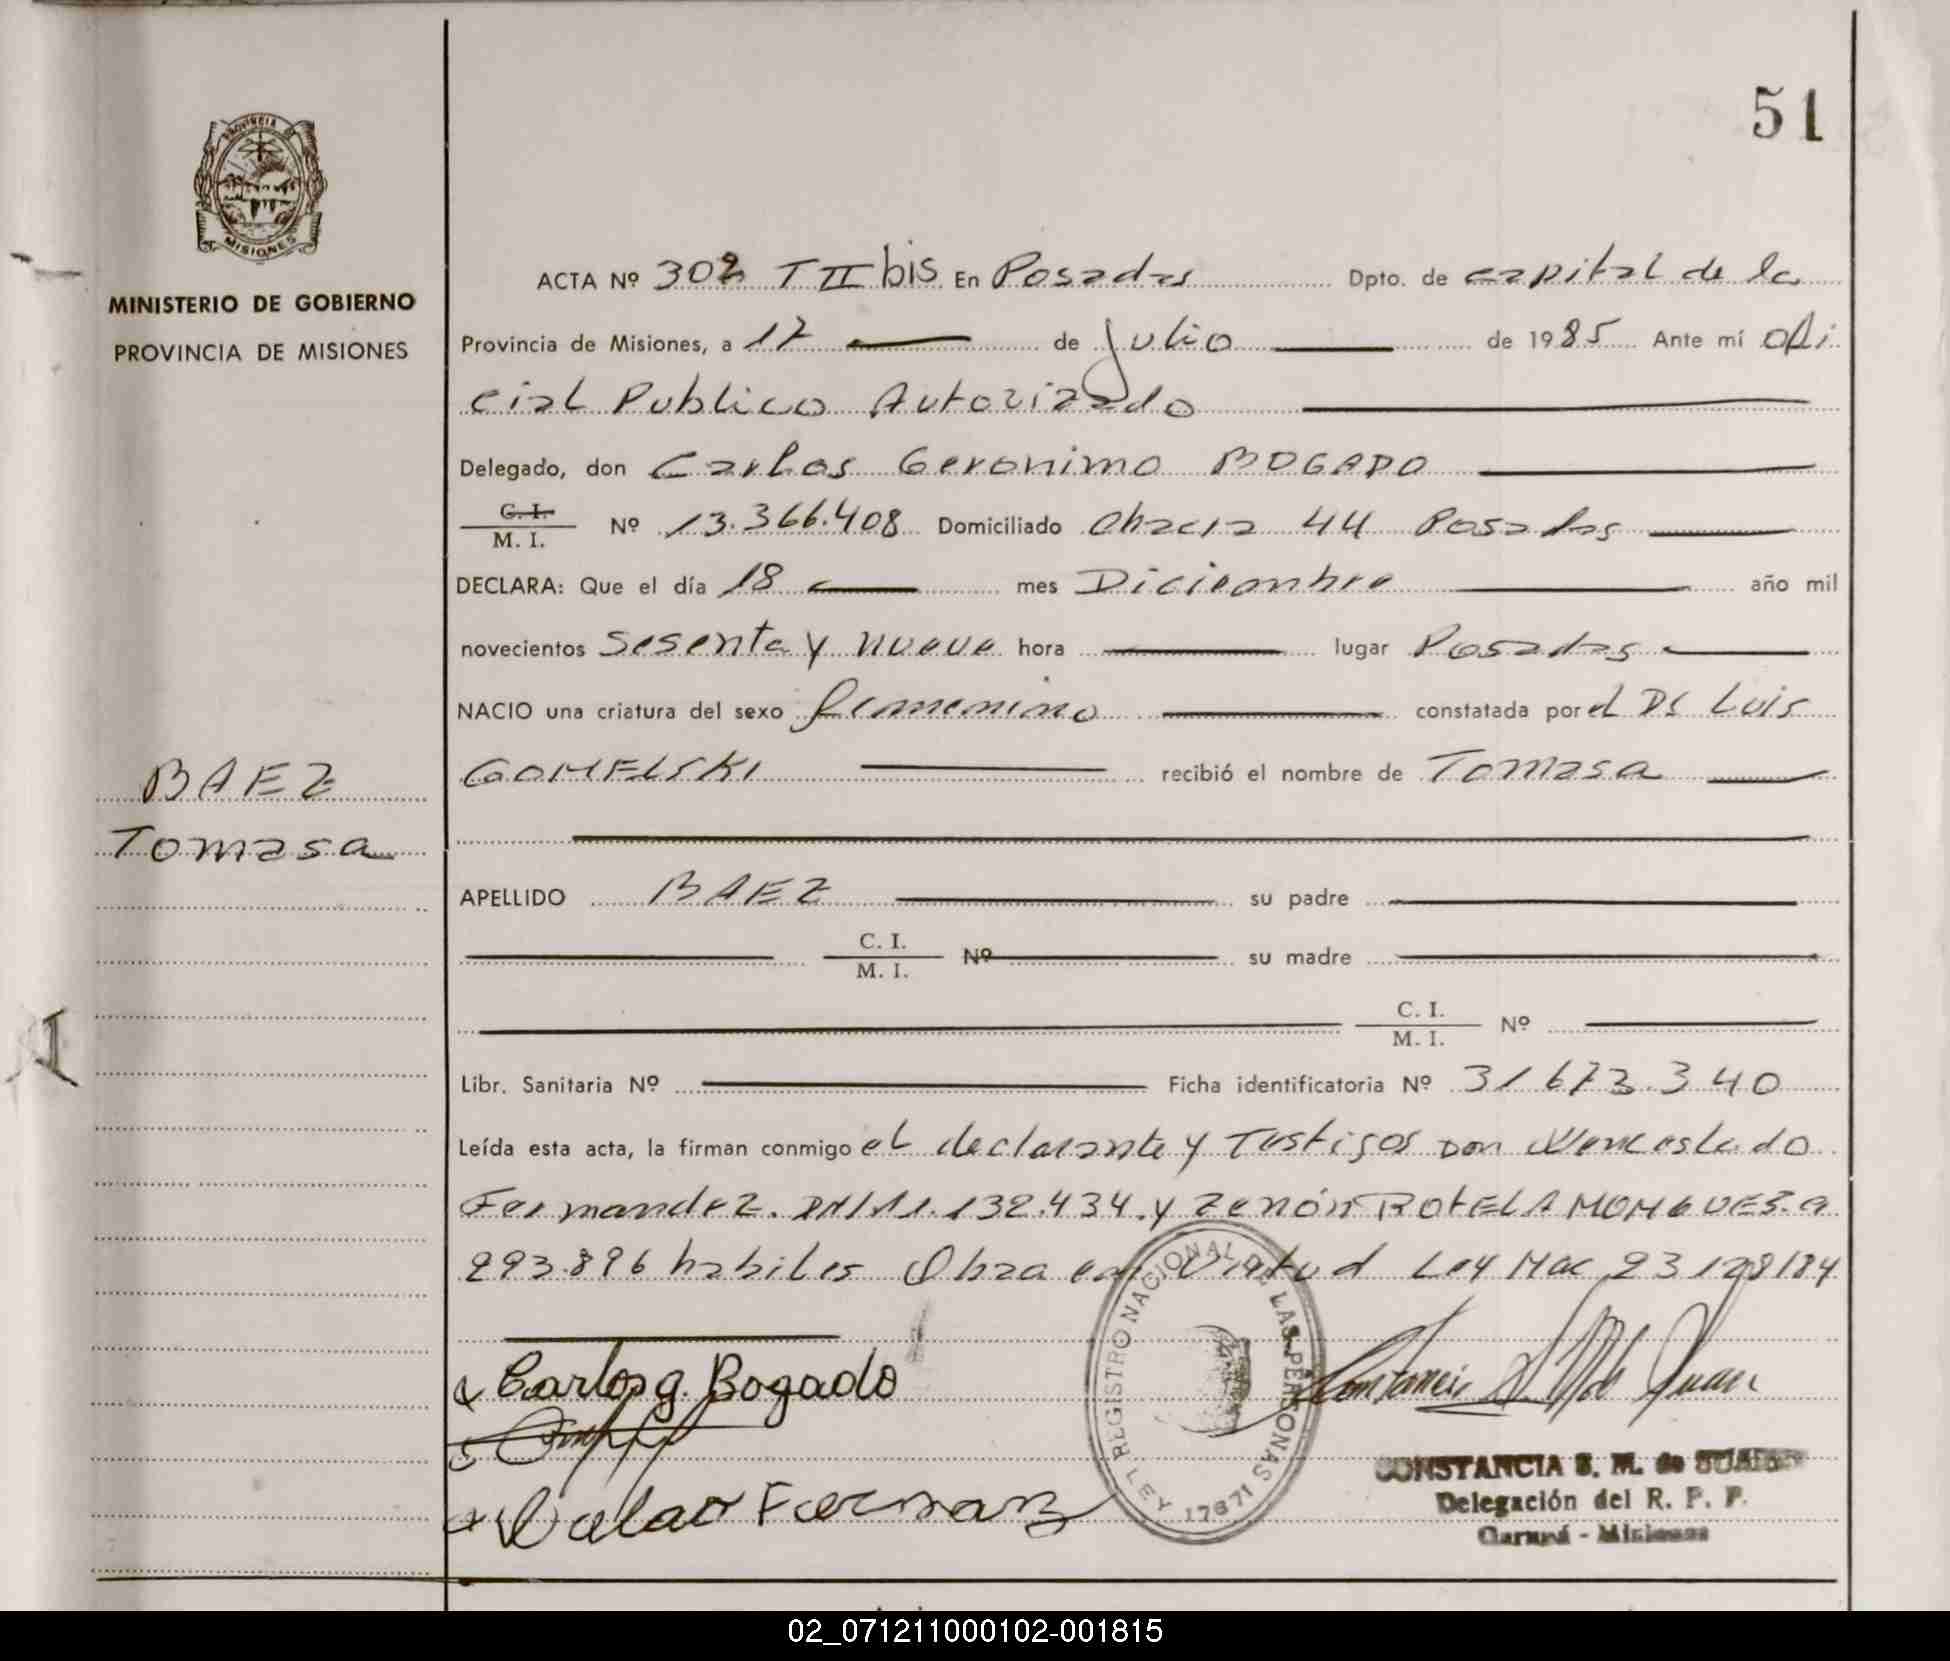 51
PROVINCIA DE
MISIONES
MINISTERIO DE GOBIERNO
PROVINCIA DE MISIONES
ACTA Nº 302 T II bis En Posadas Dpto. de capital de la
Provincia de Misiones, a 17 de Julio de 1985 Ante mí ofi
cial Publico Autorizado
Delegado, don Carlos Geronimo BOGADO
C. I.
M. I. Nº 13.366.408 Domiciliado Chacra 44 Posadas
DECLARA: Que el día 18 mes Diciembre año mil
novecientos sesenta y nueve hora lugar Posadas
NACIO una criatura del sexo femenino constatada por el Dr Luis
BAEZ
GOMELSKI recibió el nombre de Tomasa
Tomasa
APELLIDO BAEZ su padre
C. I.
M. I. Nº su madre
C. I.
M. I. Nº
Libr. Sanitaria Nº Ficha identificatoria Nº 31673.340
Leída esta acta, la firman conmigo el declarante y Testigos Don Wenceslado
Fernandez. 132.434. y Zenón ROTELA
293.896 habiles Obra en Virtud Ley Nac 23128/84
Carlos g. Bogado
REGISTRO NACIONAL DE LAS PERSONAS
LEY 17671
CONSTANCIA S. M. de
Delegación del R. P. P.
Garupá - Misiones
02_071211000102-001815